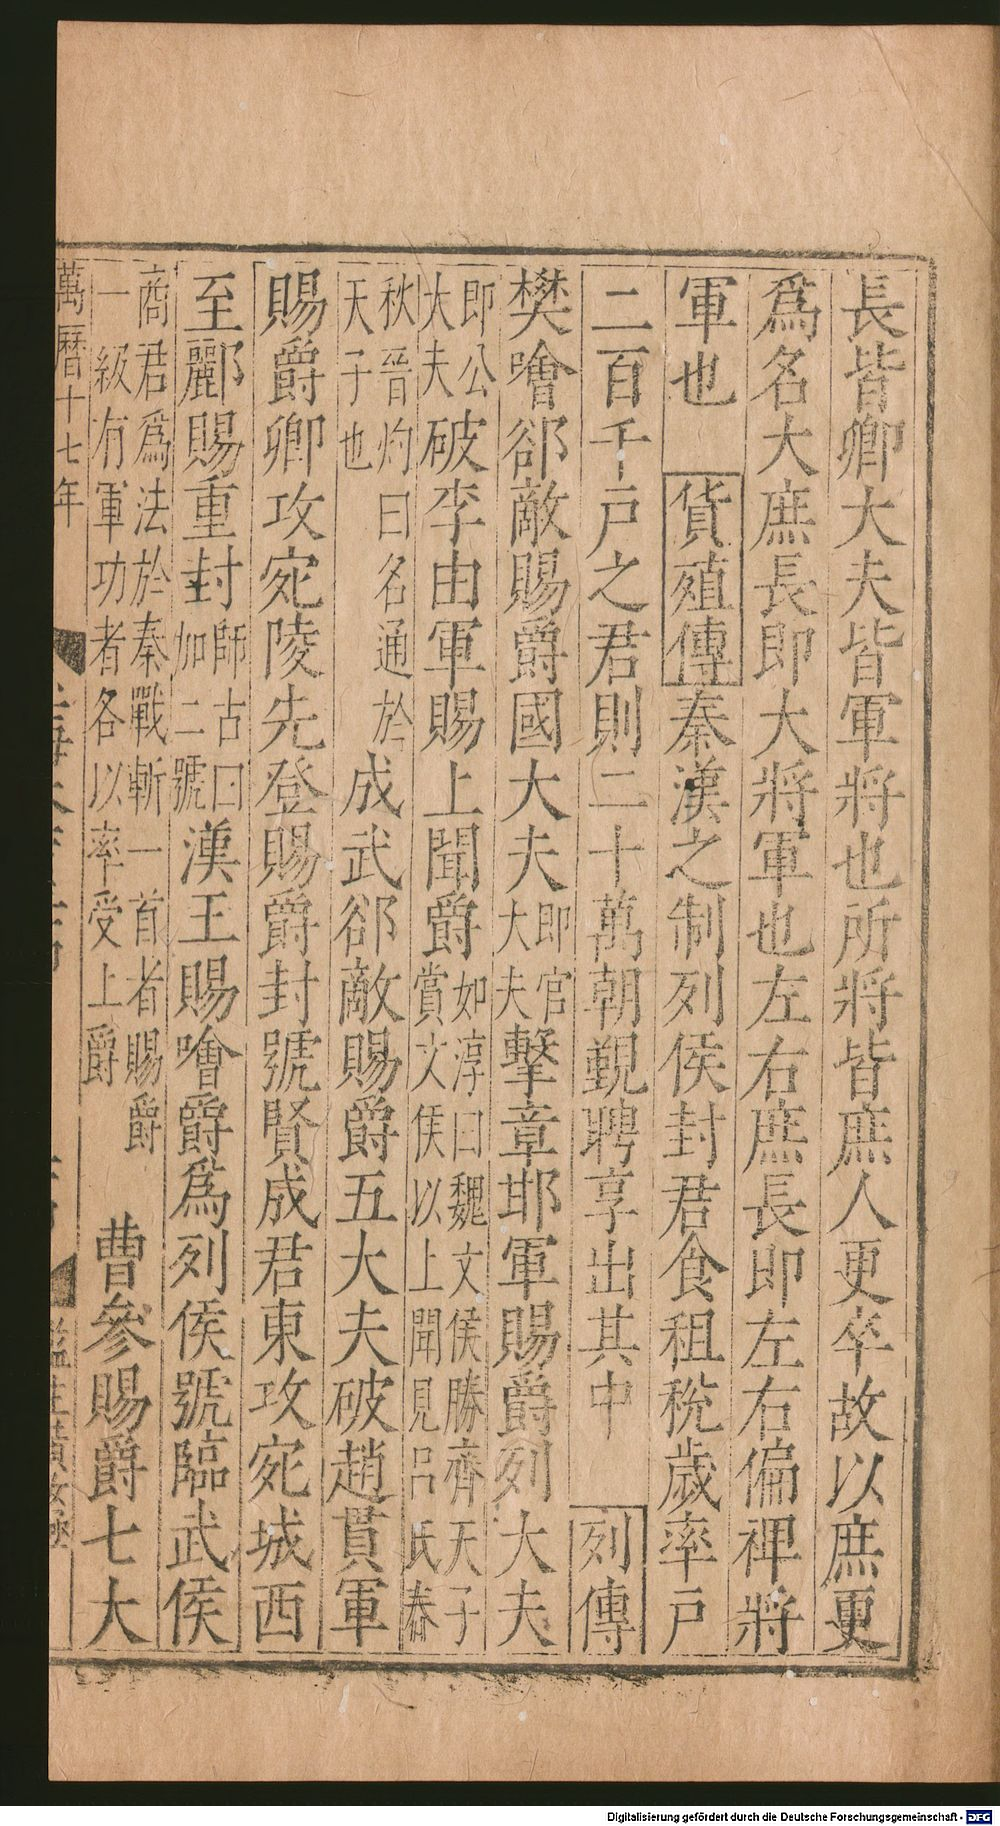 長皆卿大夫皆軍將也所將皆庶人更卒故以庶更
爲名大庶長即大將軍也左右庶長即左右偏裨將
軍也 貨殖傳秦漢之制列侯封君食租稅歲率戶
二百千戶之君則二十萬朝覲聘享出其中 列傳
樊噲郤敵賜爵國大夫即官大夫擊章邯軍賜爵列大夫
即公大夫破李由軍賜上聞爵如淳曰魏文侯勝齊天子賞文侯以上聞見呂氏春
秋晉灼曰名通於天子也成武郤敵賜爵五大夫破趙賁軍
賜爵卿攻宛陵先登賜爵封號賢成君東攻宛城西
至酈賜重封師古曰加二號漢王賜噲爵爲列侯號臨武侯
商君爲法於秦戰斬一首者賜爵一級有軍功者各以率受上爵 曹參賜爵七大
萬曆十七年
Digitalisierung gefördert durch die Deutsche Forschungsgemeinschaft - DFG